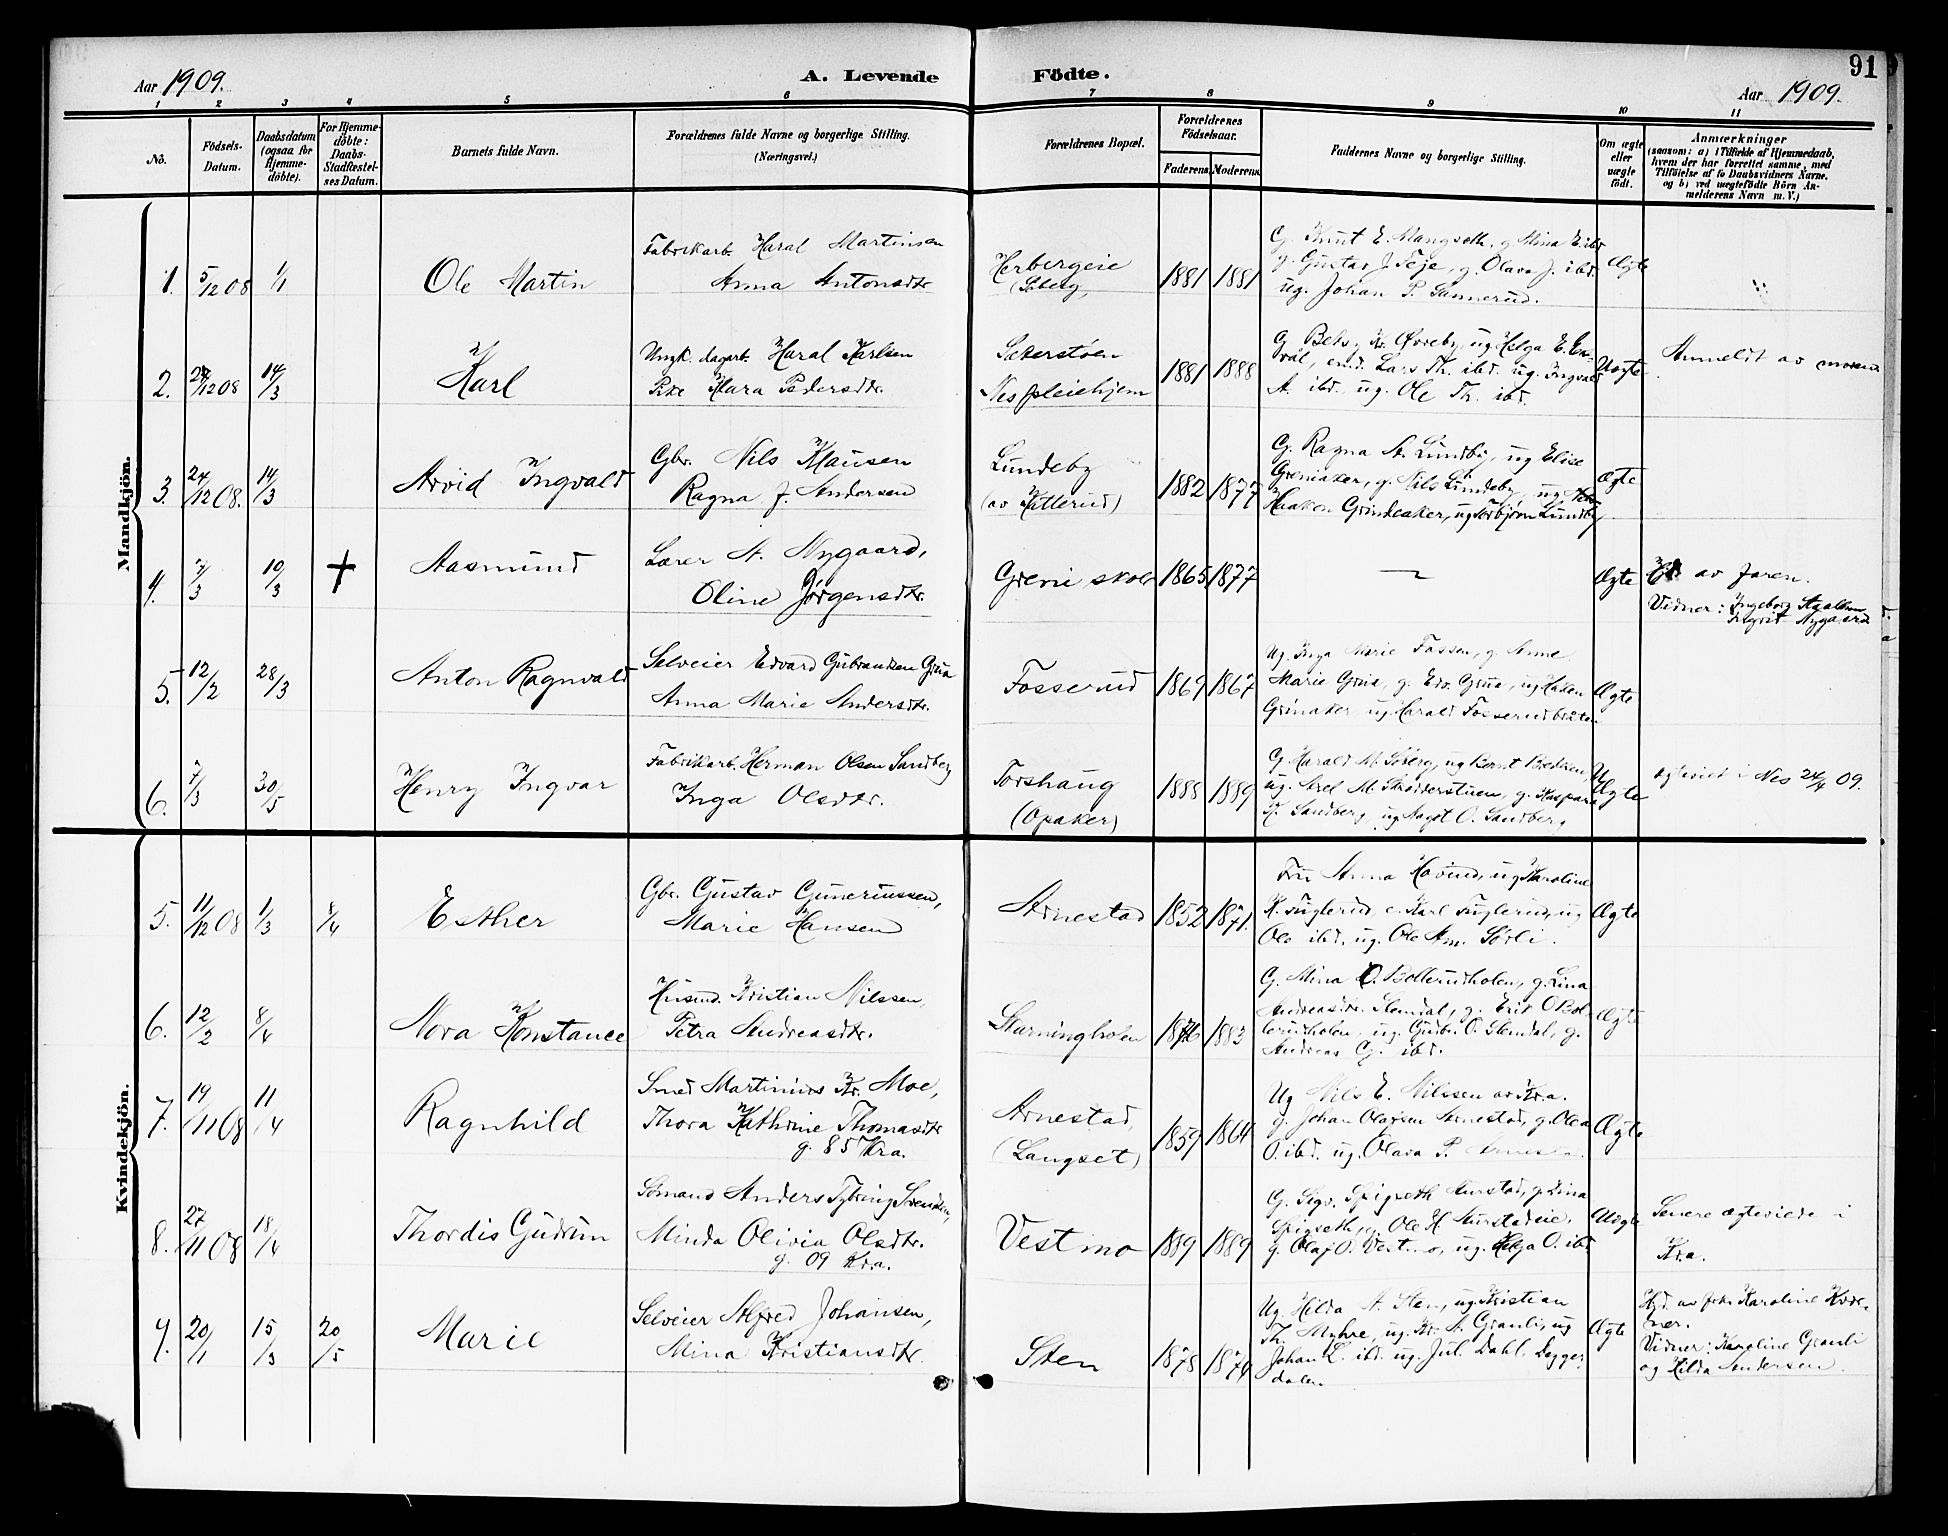 Aar 1909.
A. Levende Födte.
91
Aar 1909.
1 2 3 4 5 6 7 8 9 10 11
No. Födsels-Datum. Daabsdatum (ogsaa for Hjemme-döbte). For Hjemme-döbte: Daabs-Stadfæstel-ses Datum. Barnets fulde Navn. Forældrenes fulde Navne og borgerlige Stilling. (Næringsvei.) Forældrenes Bopæl. Forældrenes Födselsaar. Faderens. Moderens. Faddernes Navne og borgerlige Stilling. Om ægte eller uægte födt. Anmærkninger
(saasom: a) i Tilfælde af Hjemmedaab, hvem der har forrettet samme, med Tilföielse af to Daabsvidners Navne, og b) ved uægtefödte Börn An-melderens Navn m. V.)
Mandkjön.
1. 5/12 08 1/1 Ole Martin
Fabrikarb. Haral Martinsen
Anna Antonsdtr
Herbergeie
1881 1881
G. Knut E. Mangseth, g. Mina E. ibd
g. Gustav J. Teje, g. Olava J. ibd.
ug. Johan P. Sannerud.
Ægte
2. /12 08 14/3 Karl
Ungk. dagarb. Haral Karlsen
Pike Klara Pedersdtr.
Sæterstøen
Nes pleiehjem
1881 1888
Øvreby, ug. Helga E.
Lars Th. ibd. ug. Ingvald
A. ibd. ug. Ole Th. ibd.
Uægte
Anmeldt av moren
3. 24/12 08. 14/3 Arvid Ingvald
Gbr. Nils Klausen
Ragna J. Andersen
Lundeby
(av Hatterud)
1882 1877
G. Ragna A. Lundby, ug Elise
Greniaker, g. Nils Lundeby, ug
Haakon Grindeaker, ug Torbjørn Lundby
Ægte
4. 7/3 10/3 + Aasmund
Lærer A. Nygaard,
Oline Jørgensdtr.
Greni skole
1865 1877
—
Ægte
av faren.
Vidner: Ingeborg
Ingrit Nygaard
5. 12/2 28/3 Anton Ragnvald
Selveier Edvard Gubrandsen Grua
Anna Marie Andersdtr.
Fosserud
1869 1867
Ug. Inga Marie Fossen, g. Anne
Marie Grua, g. Edv. Grua, ug Haken
Grinaker ug. Harald Fosserudbråten
Ægte
6. 7/3 30/5 Henry Ingvar
Fabrikarb. Herman Olsen Sandberg
Inga Olsdtr.
Torshaug
(Opaker)
1888 1889
G. Harald M. Søberg, ug Bernt Bredesen,
ug. Axel M. g. Kaspara
K. Sandberg ug Magot O. Sandberg
Uægte
ægteviet i Nes 24/4 09.
Kvindekjön.
5. 11/12 08 1/3 8/4 Esther
Gbr. Gustav Guneriussen,
Marie Hansen
Arnestad
1852 1871.
Fru Anna Hovind, ug Karoline
K. Fuglerud, e. Karl Fuglerud, ug
Ole ibd, ug. Ole Am. Sørli.
Ægte
6. 12/2 8/4 Nora Konstance
Husmd. Kristian Nilssen,
Petra Andreasdtr.
Starningholen
1876 1883
G. Mina O. Bollerudholen, g. Lina
Andreasdtr. Slemdal, g. Erik O Bol-
lerudholen, ug. Gudbr. O. Slemdal, g.
Andreas G. ibd.
Ægte
7. 19/11 08 11/4 Ragnhild
Smed Martinius Kr. Moe,
Thora Kathrine Thomasdtr
g. 85 Kra.
Arnestad,
(Langset)
1859 1864
Ug Nils E. Nilssen av Kra.
g. Johan Olafsen Arnestad, g. Olea
O. ibd. ug. Olava P.
Ægte
8. 27/11 08 18/4 Thordis Gudrun
Sømand Anders Tybring Svendsen,
Minda Olivia Olsdtr.
g. 09 Kra.
Vestmo
1889 1889
G. Sigv. Spigseth Aurstad, g. Lina
Spigseth, g. Ole H. Aurstadeie,
g. Olaf O. Vestmo, ug. Helga O. ibd
Uægte
Senere ægteviede i
Kra.
9. 20/1 15/3 20/5 Marie
Selveier Alfred Johansen,
Mina Kristiansdtr.
Sten
1878 1874
Ug Hilda A. Sten, ug. Kristian
Th. Myhre, ug. Kr. A. Granli, ug
Johan L. ibd. ug. Jul. Dahl, Dagger-
dalen
Ægte
Hjd. av frk. Karoline
ner.
Vidner: Karoline Granli
og Hilda Andersen.